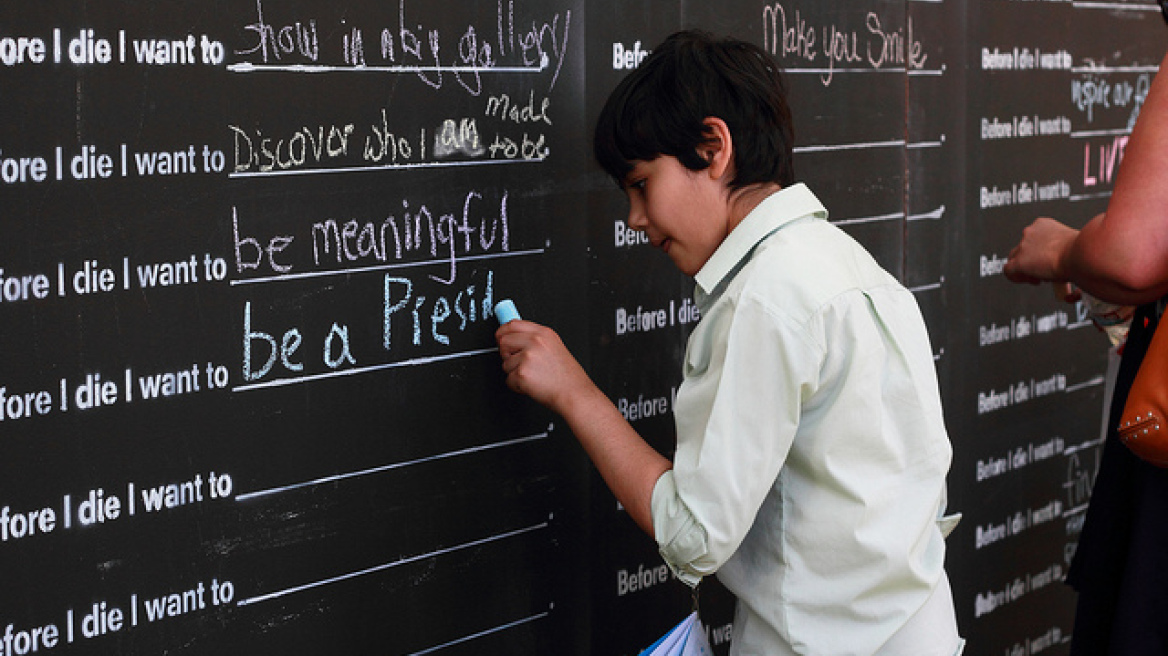 Before I die I want to show in a big gallery
made
Before I die I want to Discover who I am to be.
Before I die I want to be meaningful.
Before I die I want to be a Presid
Before I die I want to
Before I die I want to
Before I die I want to
Make you Smile
Before I die
Before
Before
Before I die I want to
Before I die I want to inspire
Before I die I want to LIVE
Before I die I want to
Before I die I want to
Before I die I want to
Before I die I want to
Before I die I want to
Before I die I want to